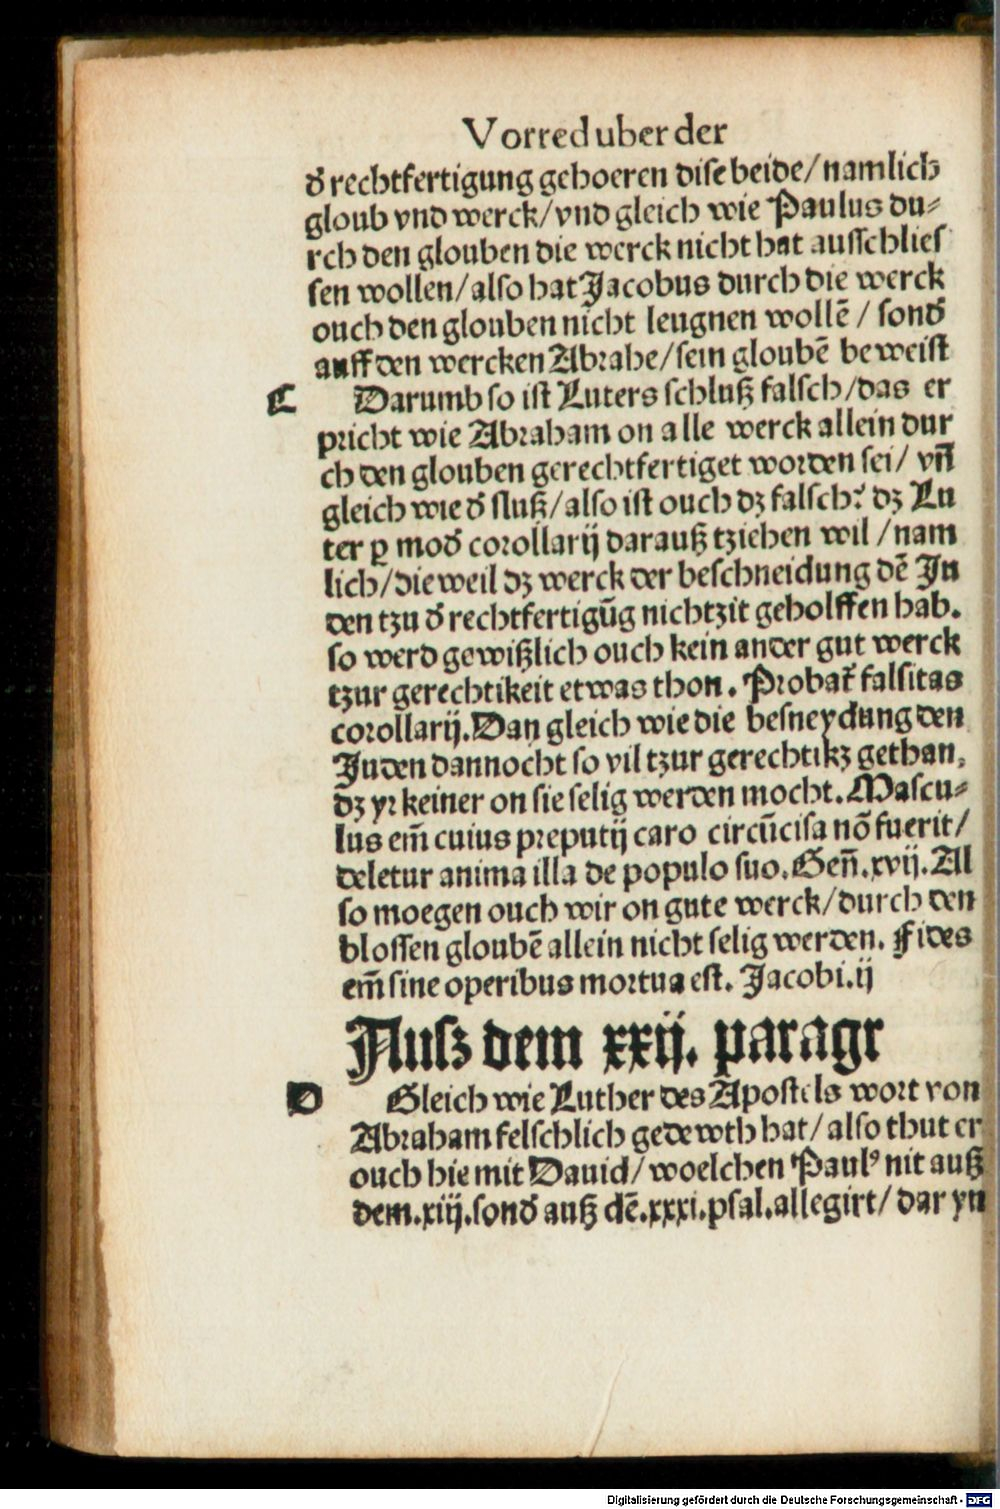 Vorred uber der
d̓ rechtfertigung gehoeren dise beide/ namlich
gloub vnd werck/ vnd gleich wie Paulus du⸗
rch den glouben die werck nicht hat ausschlies
sen wollen/ also hat Jacobus durch die werck
ouch den glouben nicht leugnen wollē / sond̓
auff den wercken Abrahe/ sein gloubē beweist
C Darumb so ist Luters schluß falsch/ das er
pricht wie Abraham on alle werck allein dur
ch den glouben gerechtfertiget worden sei/ vn̄
gleich wie d̓ sluß/ also ist ouch dz falsch? dz Lu
ter ꝑ mod̓ corollarij darauß tziehen wil / nam
lich/ dieweil dz werck der beschneidung dē Ju
den tzu d̓ rechtfertigūg nichtzit geholffen hab.
so werd gewißlich ouch kein ander gut werck
tzur gerechtikeit etwas thon. Probat̄ falsitas
corollarij. Dan gleich wie die besneydung den
Juden dannocht so vil tzur gerechtikz gethan,
dz yr keiner on sie selig werden mocht. Mascu⸗
lus em̄ cuius preputij caro circūcisa nō fuerit/
deletur anima illa de populo suo. Gen̄. xvij. Al
so moegen ouch wir on gute werck/ durch den
blossen gloubē allein nicht selig werden. Fides
em̄ sine operibus mortua est. Jacobi. ij
Ausz dem xxij. paragr
D Gleich wie Luther des Apostels wort von
Abraham felschlich gedewth hat/ also thut er
ouch hie mit Dauid/ woelchen Paulꝰ nit auß
dem. xiij. sond̓ auß dē. xxxi. psal. allegirt/ dar yn
Digitalisierung gefördert durch die Deutsche Forschungsgemeinschaft - DFG